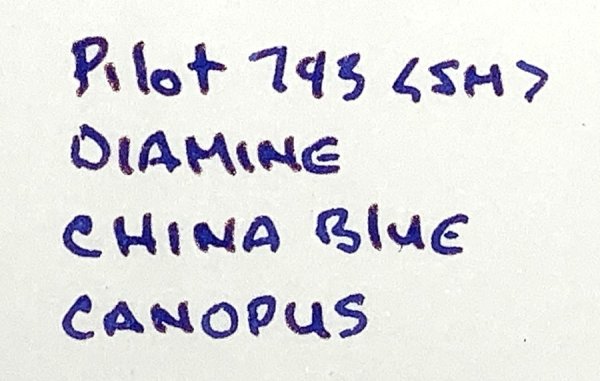 Pilot 743 <SM>
DIAMINE
CHINA BlUE
CANOPUS